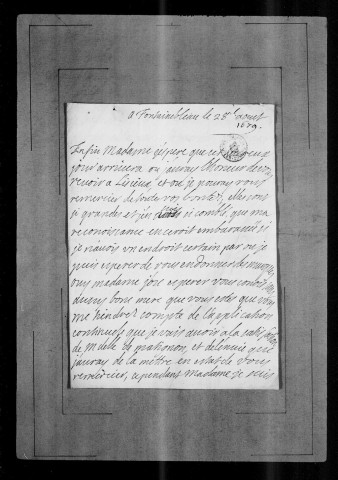 A Fontainebleau le 28e aoust
1679.
Enfin Madame j'espere que ce
jour arrivera ou j'auray l'honneur de vous
revoir a Lisieux, et ou je pouray vous
remercier de toute vos bontez, elles sont
si grandes et j'en suis si comblé, que ma
reconoissance en seroit embarassé si
je n'avois un endroit certain par ou je
puis esperer de vous en donner des marques,
ouy madame j'ose esperer vous
bons mere que vous estes que vous
me tiendrez compte de l'application
continuelle que je vais avoir a la
de Melle de matignon, et de l'envie que
j'auray de la mettre en estat de vous
remercier, cependant Madame je suis